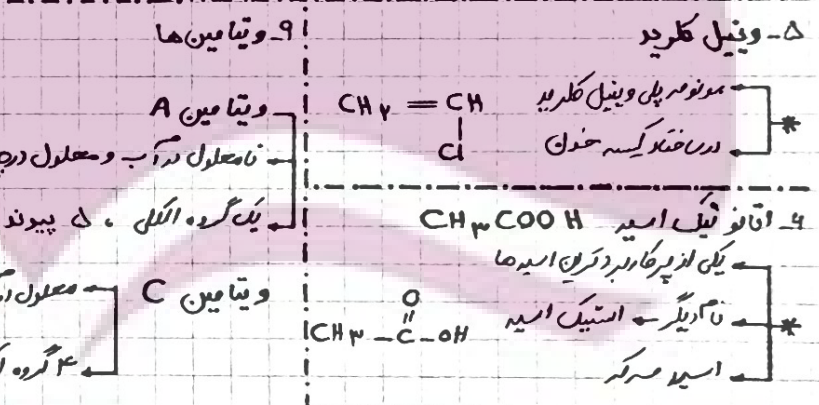 ۵- وینیل کلرید
مونومر پلی وینیل کلرید
در ساختار کیسه خون
CH۲ = CH
Cl
۶- اتانوئیک اسید CH۳COOH
یکی از پرکاربردترین اسیدها
نام دیگر ← استیک اسید
اسید سرکه
O
CH۳ - C - OH
۹- ویتامین ها
ویتامین A
نامحلول در آب و محلول در
یک گروه الکلی ، ۵ پیوند
ویتامین C
محلول
۴ گروه